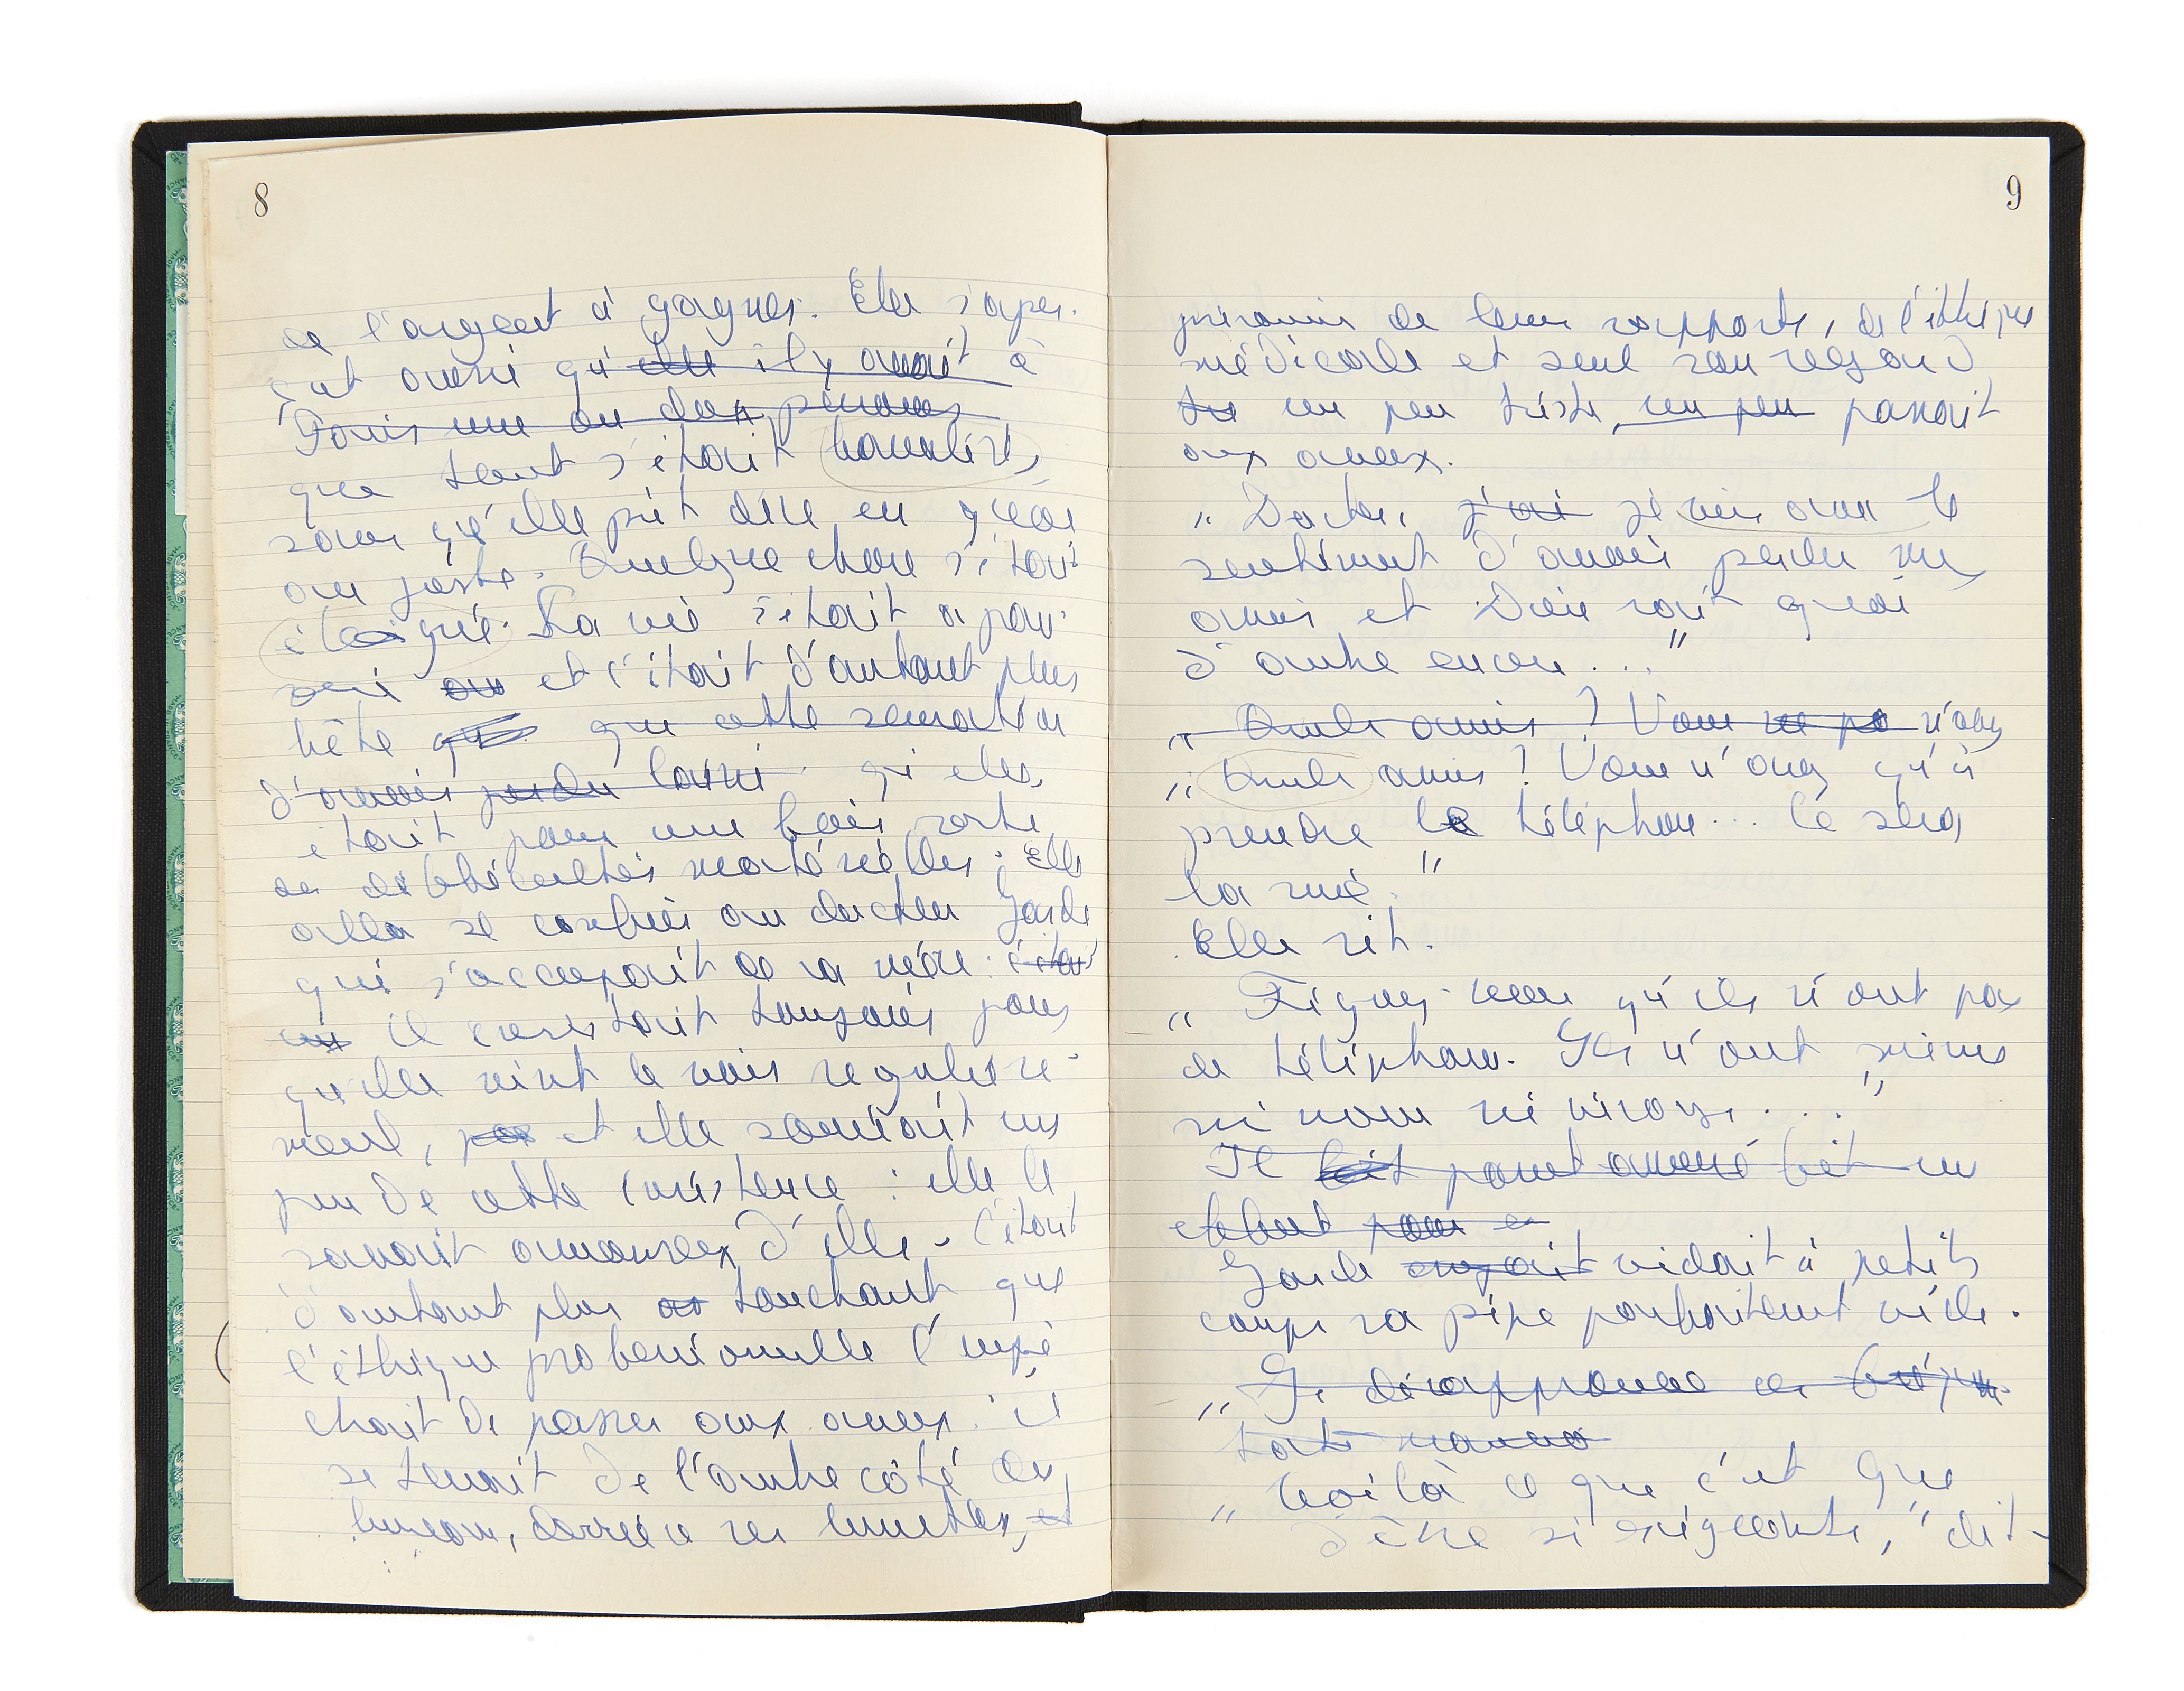 8
de l'argent à gagner. Elle s'aper-
çut aussi qu'elle il y avait à
Paris une ou deux personnes
que tout s'était banalisé,
sans qu'elle pût dire en quoi
au juste. Quelque chose s'était
éloigné. La vie s'était appau-
vri et c'était d'autant plus
bête que cette sensation
d'avoir perdu qu'elle
était pour une fois sortie
de difficultés matérielles. Elle
alla se confier au docteur Garde
qui s'occupait de sa mère. c'était
il insistait toujours pour
qu'elle vînt le voir régulière-
ment, et elle souriait un
peu de cette insistance : elle le
savait amoureux d'elle. C'était
d'autant plus touchant que
l'éthique professionnelle l'empê
chait de passer aux aveux. il
se tenait de l'autre côté du
bureau, derrière ses lunettes, et
9
prisonnier de leurs rapports, de l'éthique
médicale et seul son regard
un peu triste un peu passait
aux aveux.
" Docteur j'ai je vis avec le
sentiment d'avoir perdu mes
amis et Dieu sait quoi
d'autre encore... "
" Quels amis ? Vous ne n'avez
" Quels amis ? Vous n'avez qu'à
prendre le téléphone... Ce sera
la ruée. "
Elle rit.
" Figurez-vous qu'ils n'ont pas
de téléphone. Ils n'ont même
ni nom ni visage.... "
Il fit un
Garde vidait à petits
coups sa pipe parfaitement vide.
" Je désapprouve ce
" Voilà ce que c'est que
d'être si exigeante, " dit-